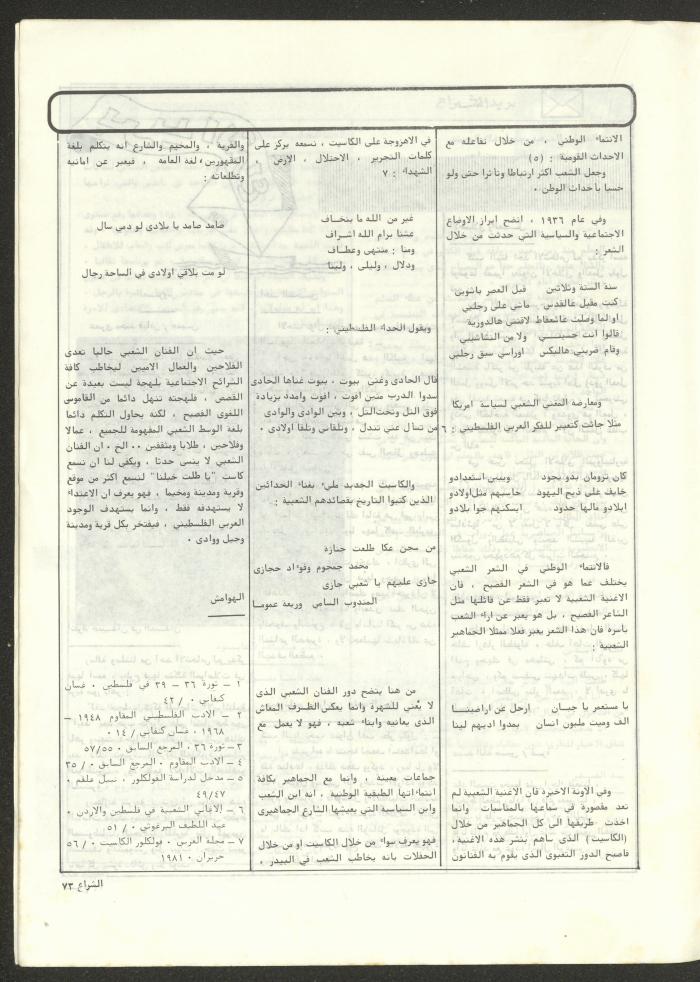 الانتماء الوطني ، من خلال تفاعله مع
الاحداث القومية : (٥)
وجعل الشعب اكثر ارتباطا وتاثرا حتى ولو
حسيا بأحداث الوطن .
وفي عام ١٩٣٦ ، اتضح ابراز الاوضاع
الاجتماعية والسياسية التي حدثت من خلال
الشعر :
سنة الستة وثلاثين قبل العصر بأشوين
كنت مقبل عالقدس ماشي على رجليي
او لما وصلت عاشعفاط لاقتني هالدورية
قالوا انت حسيني ولا من النشاشيبي
وقام ضربني هالبكس اوراسي سبق رجليي
ومعارضة المغني الشعبي لسياسة امريكا
مثلا جائت كتعبير للفكر العربي الفلسطيني : ٦
كان ترومان بدو يجود ويبين استعدادو
خايف على ذبح اليهود حاسبهم مثل اولادو
ابلادو مالها حدود ايسكنهم جوا بلادو
فالانتماء الوطني في الشعر الشعبي
يختلف عما هو في الشعر الفصيح ، فان
الاغنية الشعبية لا تعبر فقط عن قائلها مثل
الشاعر الفصيح ، بل هو يعبر عن اراء الشعب
بأسره فان هذا الشعر يعبر فعلا ممثلا الجماهير
الشعبية :
يا مستعمر يا جبان ارحل عن اراضينا
الف وميت مليون انسان يمدوا اديهم لينا
وفي الآونة الاخيرة فان الاغنية الشعبية لم
تعد مقصورة في سماعها بالمناسبات وانما
اخذت طريقها الى كل الجماهير من خلال
(الكاسيت) الذي ساهم بنشر هذه الاغنية ،
فاصبح الدور التعبوي الذي يقوم به الفنانون
في الاهزوجة على الكاسيت ، نسمعه يركز على
كلمات التحرير ، الاحتلال ، الارض ،
الشهداء : ٧
غير من الله ما بنخاف
عشنا برام الله اشراف
ومنا : منتهى وعطاف
ودلال ، وليلى ، ولينا
ويقول الحداء الفلسطيني :
قال الحادي وغني بيوت ، بيوت غناها الحادي
سدوا الدرب منين افوت ، افوت وامدة بزيادة
فوق التل وتحت التل ، وبين الوادي والوادي
من تسأل عني تندل ، وتلقاني وتلقا اولادي .
والكاسيت الجديد مليء بغناء الحدائين
الذين كتبوا التاريخ بقصائدهم الشعبية :
من سجن عكا طلعت جنازة
محمد جمجوم وفواد حجازي
جازي عليهم يا شعبي جازي
المندوب السامي وربعه عموما
من هنا يتضح دور الفنان الشعبي الذي
لا يغني للشهرة وانما يعكس الظرف المعاش
الذي يعانيه وابناء شعبه ، فهو لا يعمل مع
جماعات معينة ، وانما مع الجماهير بكافة
انتماءاتها الطبقية الوطنية ، انه ابن الشعب
وابن السياسة التي يعيشها الشارع الجماهيري
فهو يعرف سواء من خلال الكاسيت او من خلال
الحفلات بانه يخاطب الشعب في البيدر ،
والقرية ، والمخيم والشارع انه يتكلم بلغة
المقهورين ، لغة العامة ، فيعبر عن امانيه
وتطلعاته :
صامد صامد يا بلادي لو دمي سال
لو مت بلاقي اولادي في الساحة رجال
حيث ان الفنان الشعبي حاليا تعدى
الفلاحين والعمال الاميين ليخاطب كافة
الشرائح الاجتماعية بلهجة ليست بعيدة عن
القصص ، فلهجته تنهل دائما من القاموس
اللغوي الفصيح ، لكنه يحاول التكلم دائما
بلغة الوسط الشعبي المفهومة للجميع ، عمالا
وفلاحين ، طلابا ومثقفين ٠٠ الخ . ان الفنان
الشعبي لا ينسى حدثا ، ويكفي لنا ان نسمع
كاسيت "يا طلت خيلنا" لنسمع اكثر من موقع
وقرية ومدينة ومخيما ، فهو يعرف ان الاعتداء
لا يستهدفه فقط ، وانما يستهدف الوجود
العربي الفلسطيني ، فيفتخر بكل قرية ومدينة
وجبل ووادي .
الهوامش
١ ــ ثورة ٣٦ ــ ٣٩ في فلسطين . غسان
كنفاني . / ٤٢
٢ ــ الادب الفلسطيني المقاوم ١٩٤٨ ــ
١٩٦٨ ، غسان كنفاني / ١٤ .
٣ ــ ثورة ٣٦ . المرجع السابق . ٥٧/٥٥
٤ ــ الادب المقاوم . المرجع السابق . / ٣٥
٥ ــ مدخل لدراسة الفولكلور ، نبيل علقم .
٤٩/٤٧
٦ ــ الاغاني الشعبية في فلسطين والاردن .
عبد اللطيف البرغوثي . / ٥١
٧ ــ مجلة العربي . فولكلور الكاسيت . / ٥٦
حزيران ١٩٨١ .
الشراع ٧٣